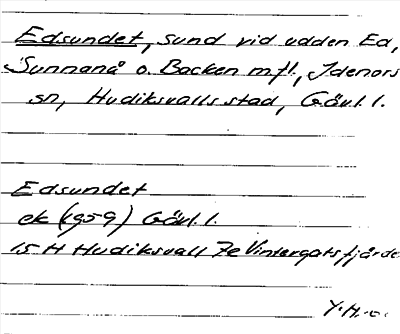 Edsundet, sund vid udden Ed,
Sunnanå o. Backen m.fl., Idenors
sn, Hudiksvalls stad, Gävl. l.
Edsundet
ek (1959) Gävl. l.
15 H Hudiksvall 7e Vintergatsfjärde
Y.H.